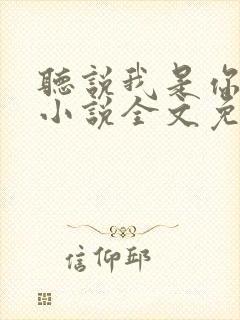 聽說我是你
小說全文免
信仰邱